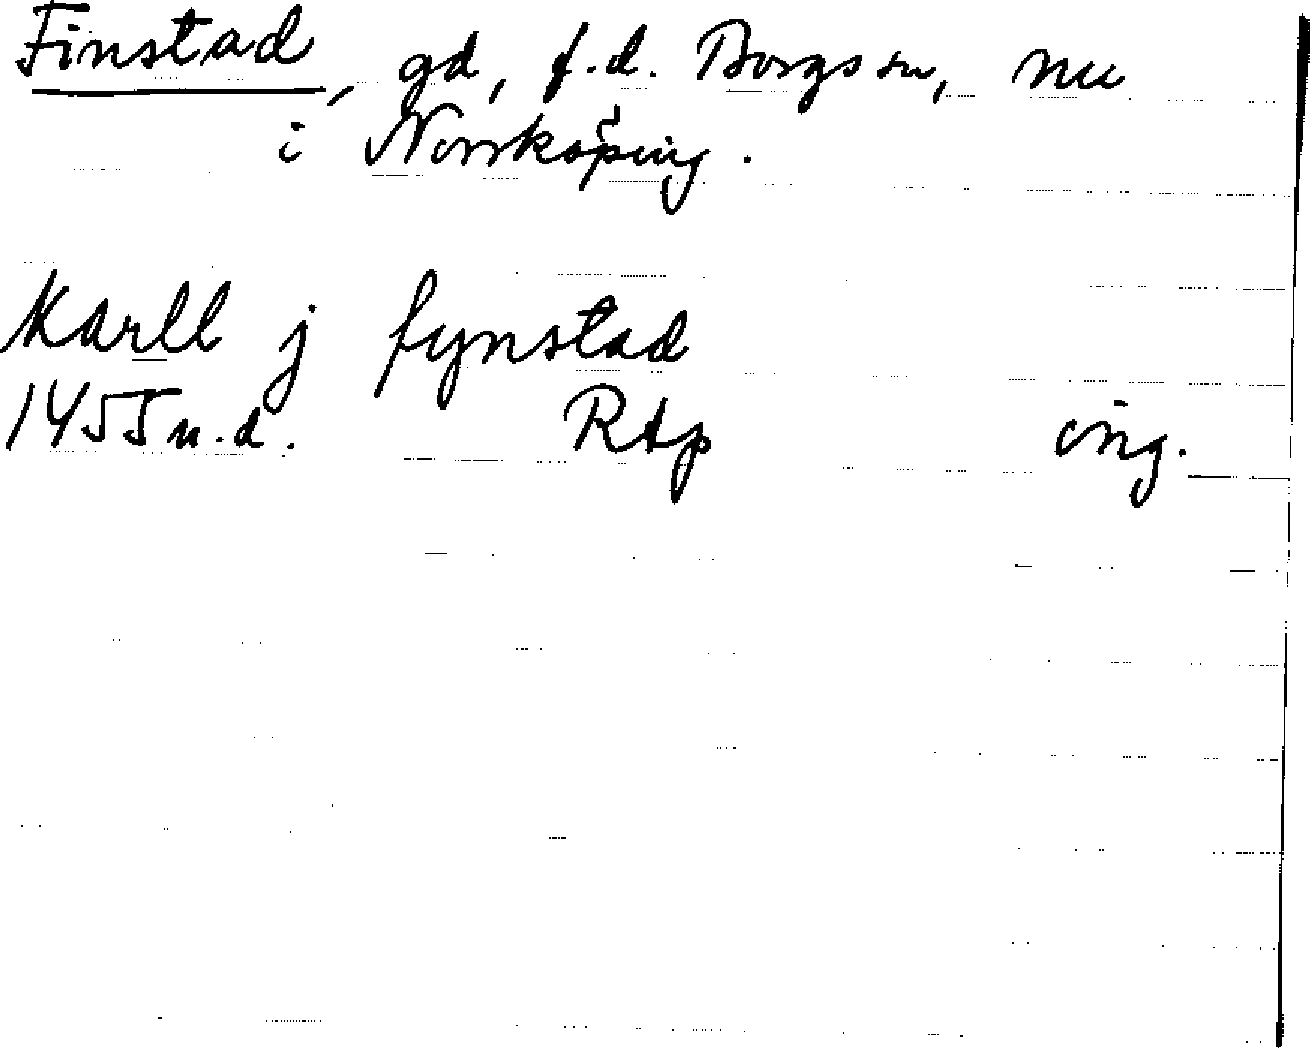 Finstad, gd, f.d. Borgs sn, nu
i Norrköping.
Karll j fynstad
1455 n.d. RAp ing.